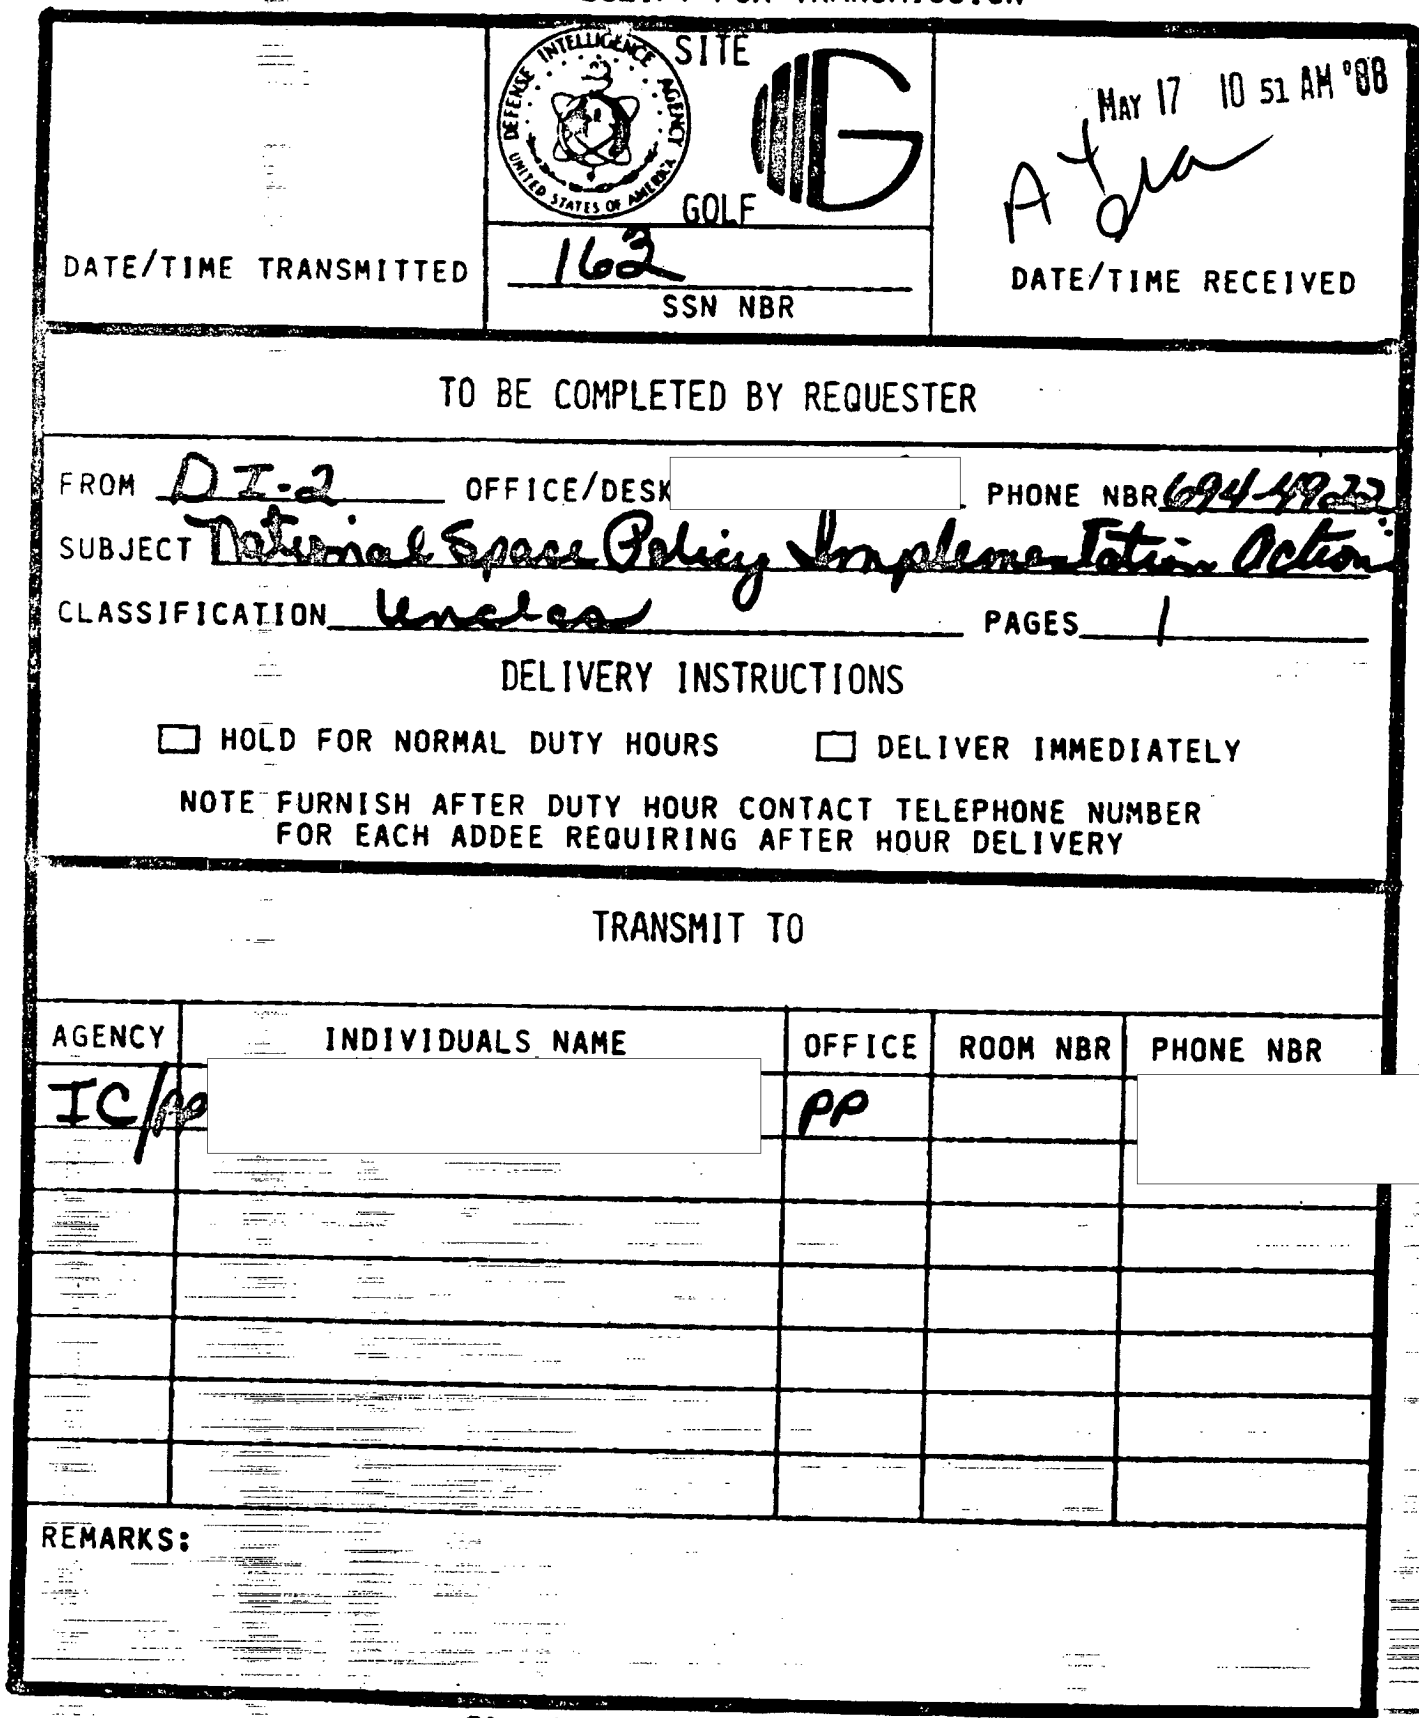 SITE
DEFENSE INTELLIGENCE AGENCY
UNITED STATES OF AMERICA
G
GOLF
MAY 17 10 51 AM '88
DATE/TIME TRANSMITTED
163
SSN NBR
DATE/TIME RECEIVED
TO BE COMPLETED BY REQUESTER
FROM DI-2 OFFICE/DESK PHONE NBR 694-4922
SUBJECT National Space Policy Implementation Action
CLASSIFICATION Unclas PAGES 1
DELIVERY INSTRUCTIONS
HOLD FOR NORMAL DUTY HOURS DELIVER IMMEDIATELY
NOTE FURNISH AFTER DUTY HOUR CONTACT TELEPHONE NUMBER
FOR EACH ADDEE REQUIRING AFTER HOUR DELIVERY
TRANSMIT TO
AGENCY INDIVIDUALS NAME OFFICE ROOM NBR PHONE NBR
IC/PP PP
REMARKS: